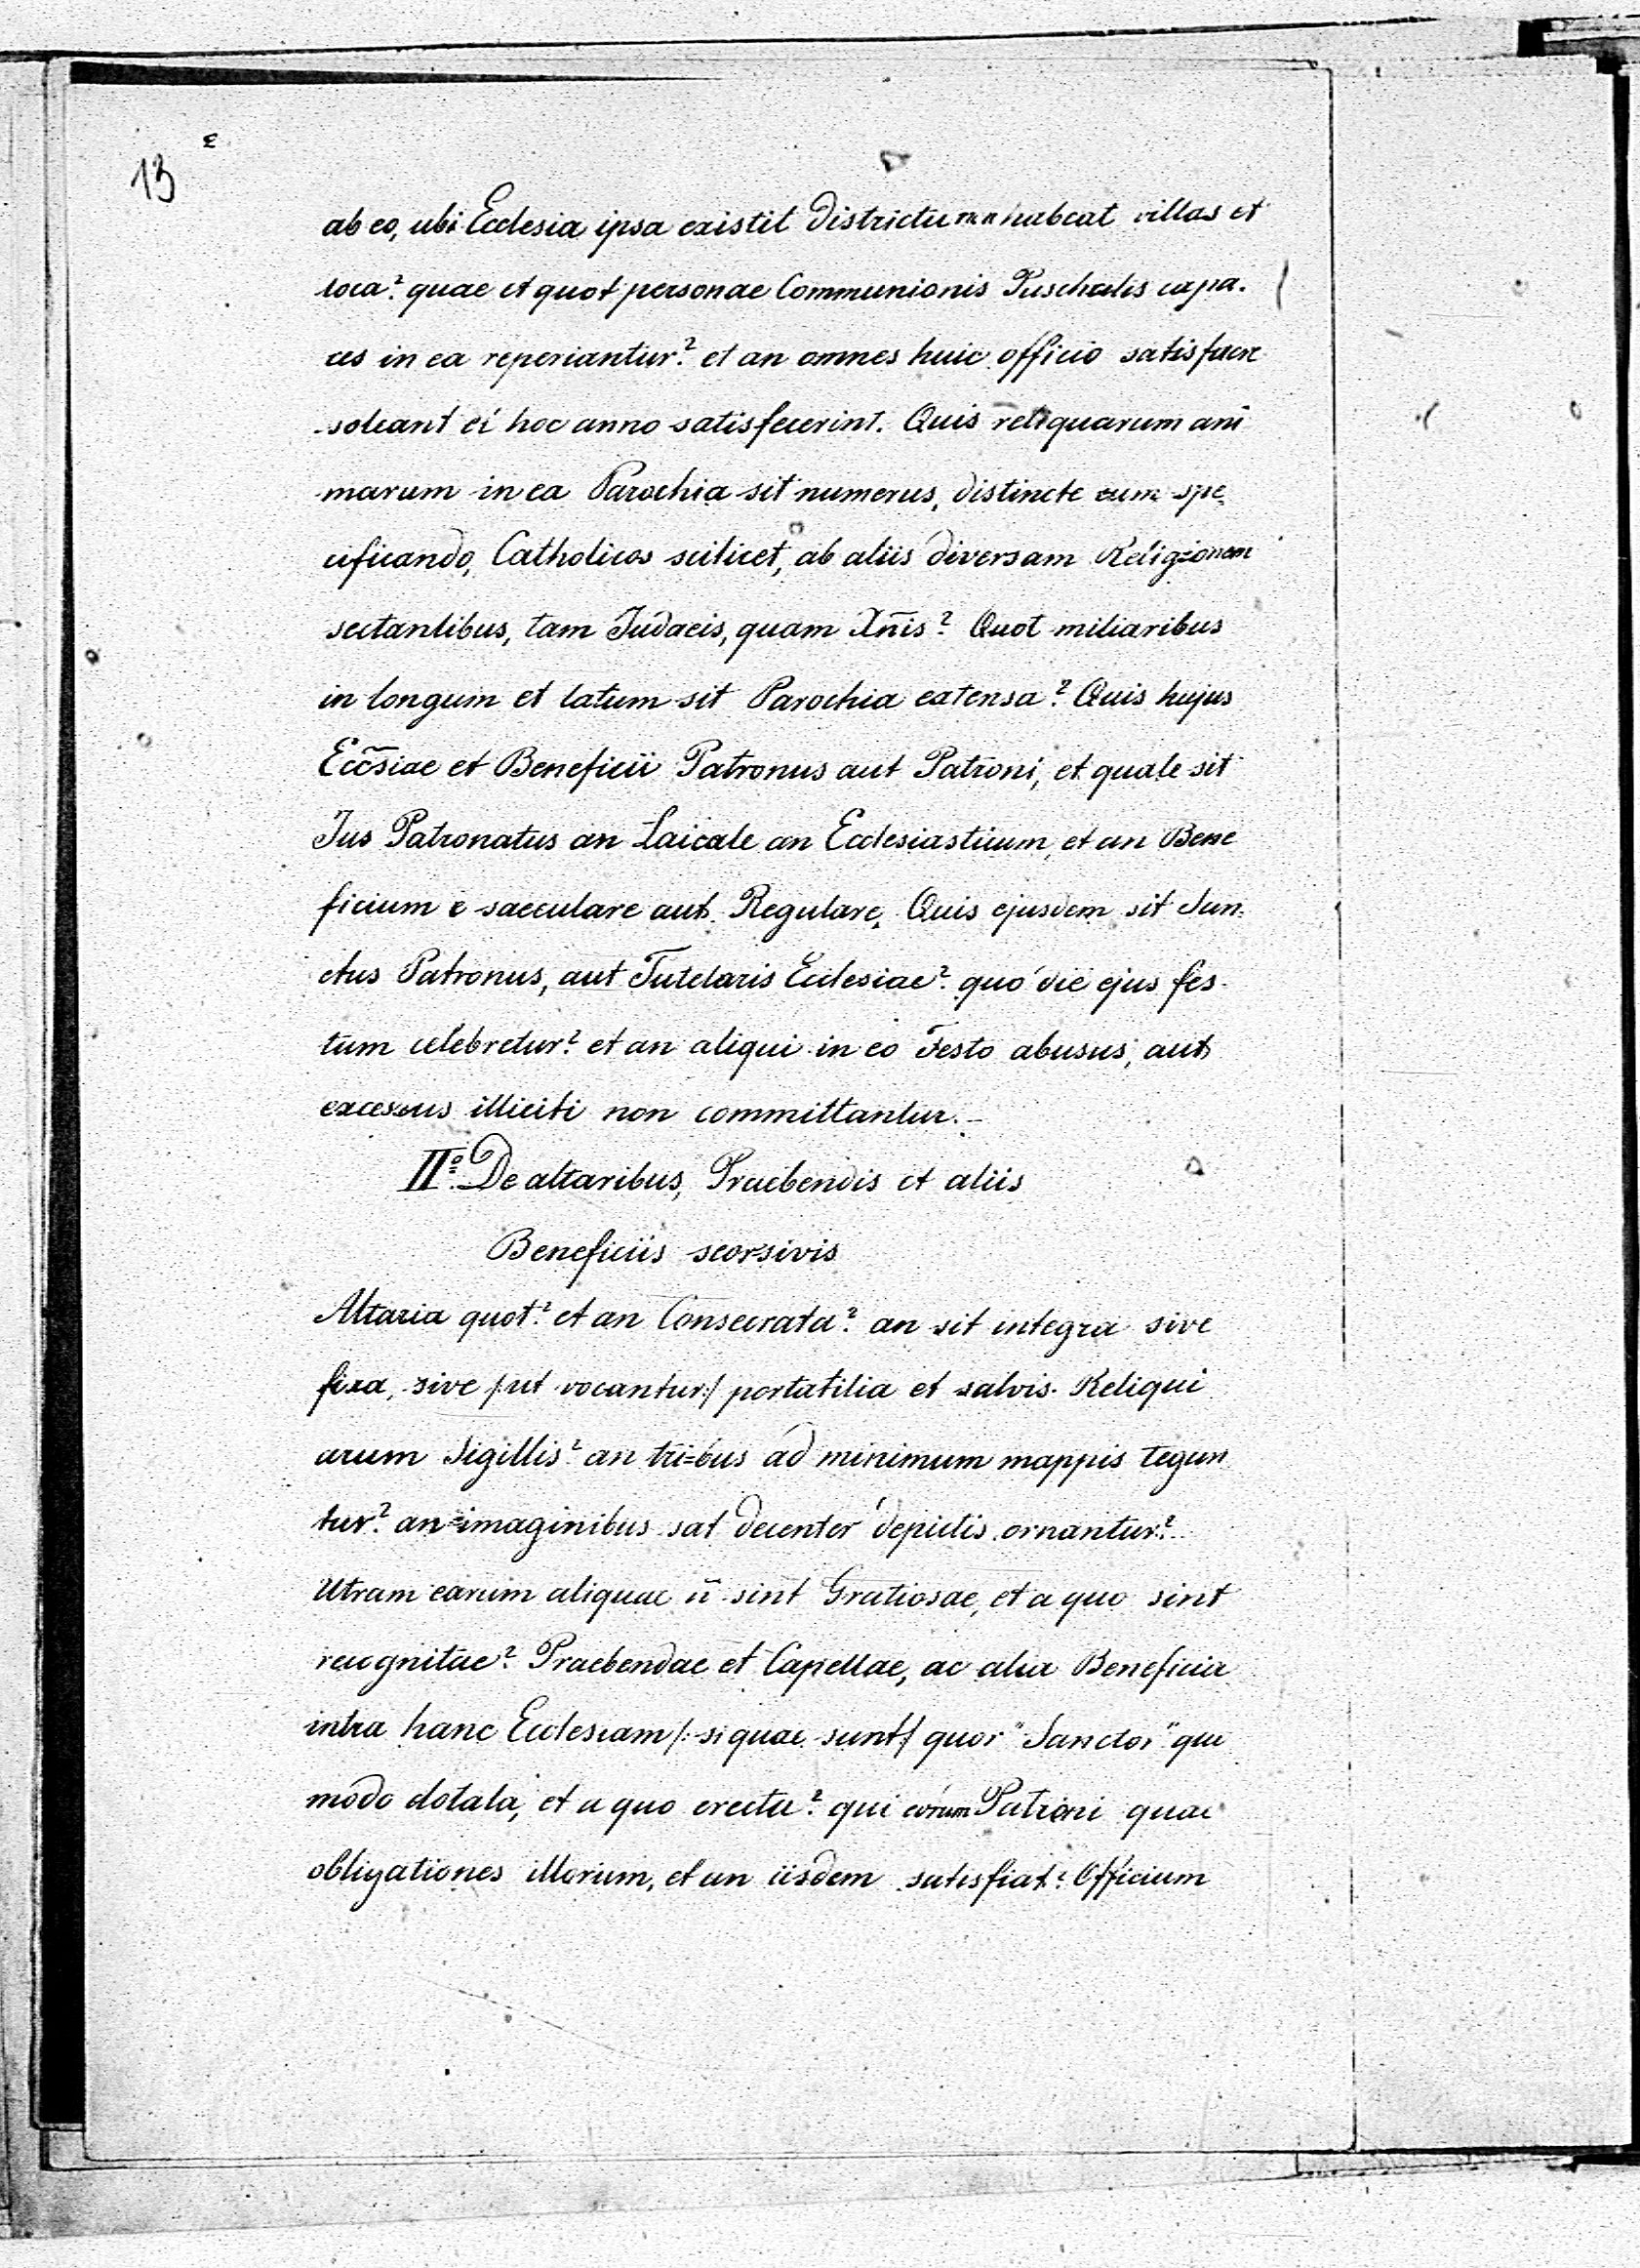 13
ab eo, ubi Ecclesia ipsa existit districtum habeat villas et
loca? quae et quot personae Communionis Paschalis capa-
ces in ea reperiantur? et an omnes huic officio satisfacere
soleant et hoc anno satisfecerint. Quis reliquarum ani
marum in ea Parochia sit numerus, distincte eum spe
cificando, Catholicos scilicet, ab aliis diversam Religionem
sectantibus, tam Judaeis, quam Xñis? Quot miliaribus
in longum et latum sit Parochia extensa? Quis hujus
Eccl̃siae et Beneficii Patronus aut Patroni, et quale sit
Jus Patronatus an Laicale an Ecclesiasticum, et an Bene
ficium e saeculare aut Regulare. Quis ejusdem sit San-
ctus Patronus, aut Tutelaris Ecclesiae? quo die ejus fes-
tum celebretur? et an aliqui in eo Festo abusus, aut
excessus illiciti non committantur.-
II⁰. De altaribus, Praebendis et aliis
Beneficiis seorsivis
Altaria quot? et an Consecrata? an sit integra sive
fixa, sive /:ut vocantur:/ portatilia et salvis Reliqui
arum Sigillis? an tri=bus ad minimum mappis tegun
tur? an imaginibus sat decenter depictis ornantur?
Utram earum aliquae ñ sint Gratiosae, et a quo sint
recognitae? Praebendae et Capellae, ac alia Beneficia
intra hanc Ecclesiam /: si quae sunt:/ quor" Sanctor" quo
modo dotata, et a quo erecta? qui eorum Patroni quae
obligationes illorum, et an iisdem satisfiat? Officium